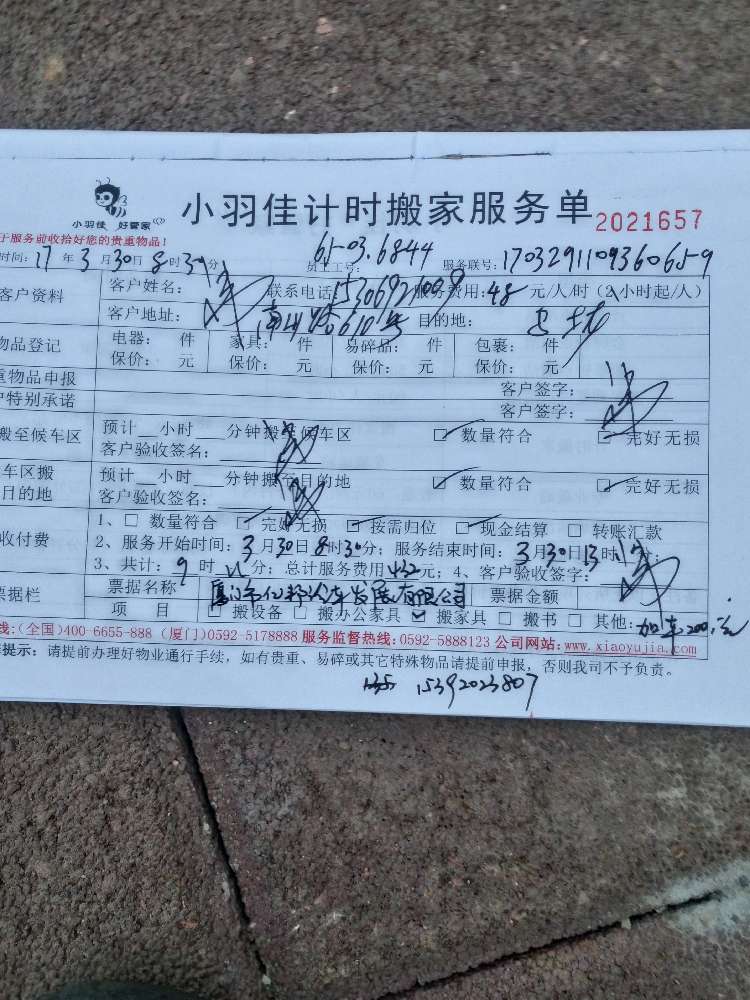 小羽佳 好管家
小羽佳计时搬家服务单 2021657
于服务前收拾好您的贵重物品!
时间: 17 年 3 月 30 日 8 时 30 分 员工工号: 6503.6844 服务联号: 1703291109360659
客户资料 客户姓名: 联系电话 服务费用: 48 元/人/时 (2小时起/人)
客户地址: 610号 目的地:
物品登记 电器: 件 家具: 件 易碎品: 件 包裹: 件
保价: 元 保价: 元 保价: 元 保价: 元
重物品申报 客户签字:
户特别承诺 客户签字:
搬至候车区 预计 小时 分钟搬至候车区 数量符合 完好无损
客户验收签名:
车区搬 预计 小时 分钟搬至目的地 数量符合 完好无损
目的地 客户验收签名:
收付费 1、 数量符合 完好无损 按需归位 现金结算 转账汇款
2、服务开始时间: 3 月 30 日 8 时 30 分; 服务结束时间: 3 月 30 日 13 时
3、共计: 9 时 分; 总计服务费用 432 元; 4、客户验收签字:
票据栏 票据名称 有限公司 票据金额
项 目 搬设备 搬办公家具 搬家具 搬书 其他: 加车200元
线: (全国)400-6655-888 (厦门)0592-5178888 服务监督热线: 0592-5888123 公司网站: www.xiaoyujia.com
提示: 请提前办理好物业通行手续, 如有贵重、易碎或其它特殊物品请提前申报, 否则我司不予负责。
15392023807